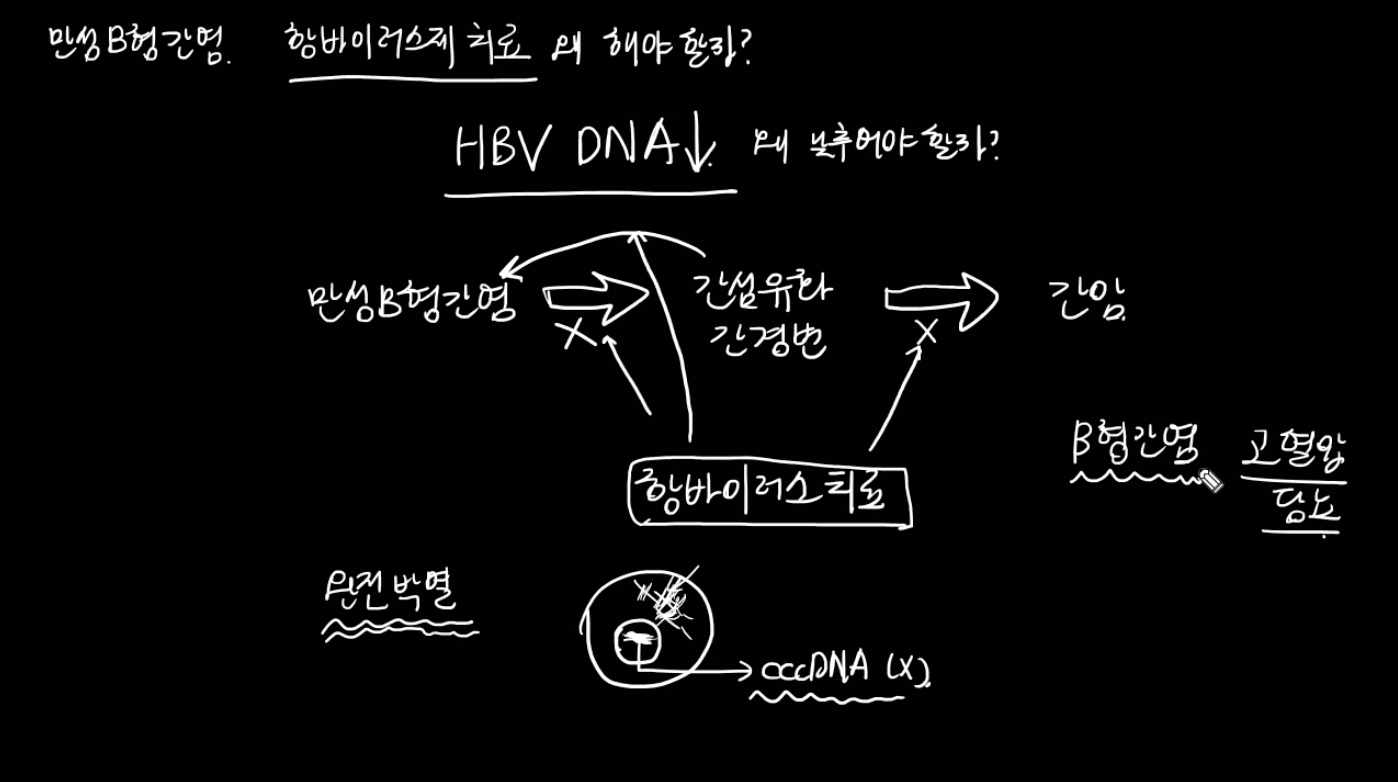 만성B형간염. 항바이러스제 치료 왜 해야할까?
HBV DNA↓ 왜 낮추어야할까?
만성B형간염
간섬유화
간경변
간암
X
X
항바이러스치료
B형간염
고혈압
당뇨
완전박멸
cccDNA (X).